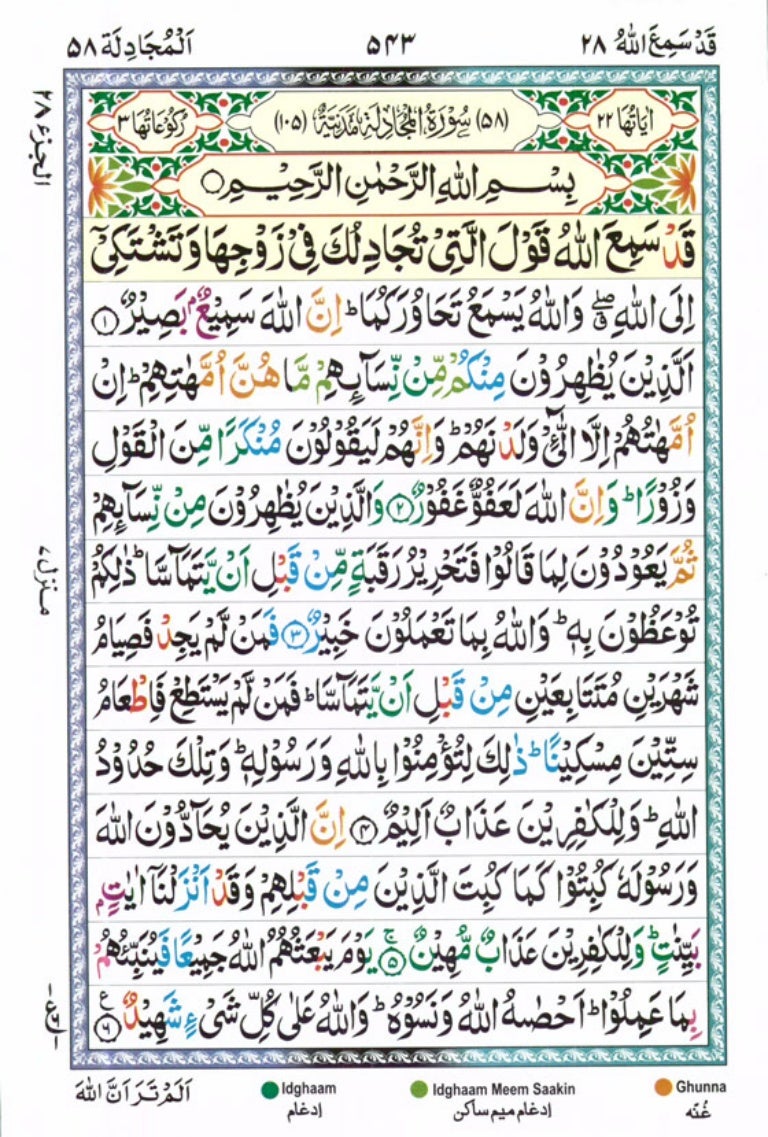 قَدْ سَمِعَ اللّٰهُ ٢٨
٥٤٣
اَلْمُجَادِلَة ٥٨
اٰيَاتُهَا ٢٢
(٥٨) سُوْرَةُ الْمُجَادِلَةِ مَدَنِيَّةٌ (١٠٥)
رُكُوْعَاتُهَا ٣
الجزء ٢٨
بِسْمِ اللّٰهِ الرَّحْمٰنِ الرَّحِيْمِ ○
قَدْ سَمِعَ اللّٰهُ قَوْلَ الَّتِيْ تُجَادِلُكَ فِيْ زَوْجِهَا وَتَشْتَكِيْۤ
اِلَى اللّٰهِ ۖ ق وَاللّٰهُ يَسْمَعُ تَحَاوُرَكُمَا ؕ اِنَّ اللّٰهَ سَمِيْعٌۢ بَصِيْرٌ ١
اَلَّذِيْنَ يُظٰهِرُوْنَ مِنْكُمْ مِّنْ نِّسَآىِٕهِمْ مَّا هُنَّ اُمَّهٰتِهِمْ ؕ اِنْ
اُمَّهٰتُهُمْ اِلَّا الّٰٓـِٔيْ وَلَدْنَهُمْ ؕ وَاِنَّهُمْ لَيَقُوْلُوْنَ مُنْكَرًا مِّنَ الْقَوْلِ
وَزُوْرًا ؕ وَاِنَّ اللّٰهَ لَعَفُوٌّ غَفُوْرٌ ٢ وَالَّذِيْنَ يُظٰهِرُوْنَ مِنْ نِّسَآىِٕهِمْ
ثُمَّ يَعُوْدُوْنَ لِمَا قَالُوْا فَتَحْرِيْرُ رَقَبَةٍ مِّنْ قَبْلِ اَنْ يَّتَمَآسَّا ؕ ذٰلِكُمْ
تُوْعَظُوْنَ بِهٖ ؕ وَاللّٰهُ بِمَا تَعْمَلُوْنَ خَبِيْرٌ ٣ فَمَنْ لَّمْ يَجِدْ فَصِيَامُ
شَهْرَيْنِ مُتَتَابِعَيْنِ مِنْ قَبْلِ اَنْ يَّتَمَآسَّا ؕ فَمَنْ لَّمْ يَسْتَطِعْ فَاِطْعَامُ
سِتِّيْنَ مِسْكِيْنًا ؕ ذٰلِكَ لِتُؤْمِنُوْا بِاللّٰهِ وَرَسُوْلِهٖ ؕ وَتِلْكَ حُدُوْدُ
اللّٰهِ ؕ وَلِلْكٰفِرِيْنَ عَذَابٌ اَلِيْمٌ ٤ اِنَّ الَّذِيْنَ يُحَآدُّوْنَ اللّٰهَ
وَرَسُوْلَهٗ كُبِتُوْا كَمَا كُبِتَ الَّذِيْنَ مِنْ قَبْلِهِمْ وَقَدْ اَنْزَلْنَاۤ اٰيٰتٍۢ
بَيِّنٰتٍ ؕ وَلِلْكٰفِرِيْنَ عَذَابٌ مُّهِيْنٌ ۚ ٥ يَوْمَ يَبْعَثُهُمُ اللّٰهُ جَمِيْعًا فَيُنَبِّئُهُمْ
بِمَا عَمِلُوْا ؕ اَحْصٰىهُ اللّٰهُ وَنَسُوْهُ ؕ وَاللّٰهُ عَلٰى كُلِّ شَيْءٍ شَهِيْدٌ ع ٦
منزل ٧
اَلَمْ تَرَ اَنَّ اللّٰهَ
Idghaam
ادغام
Idghaam Meem Saakin
ادغام ميم ساكن
Ghunna
غُنّه